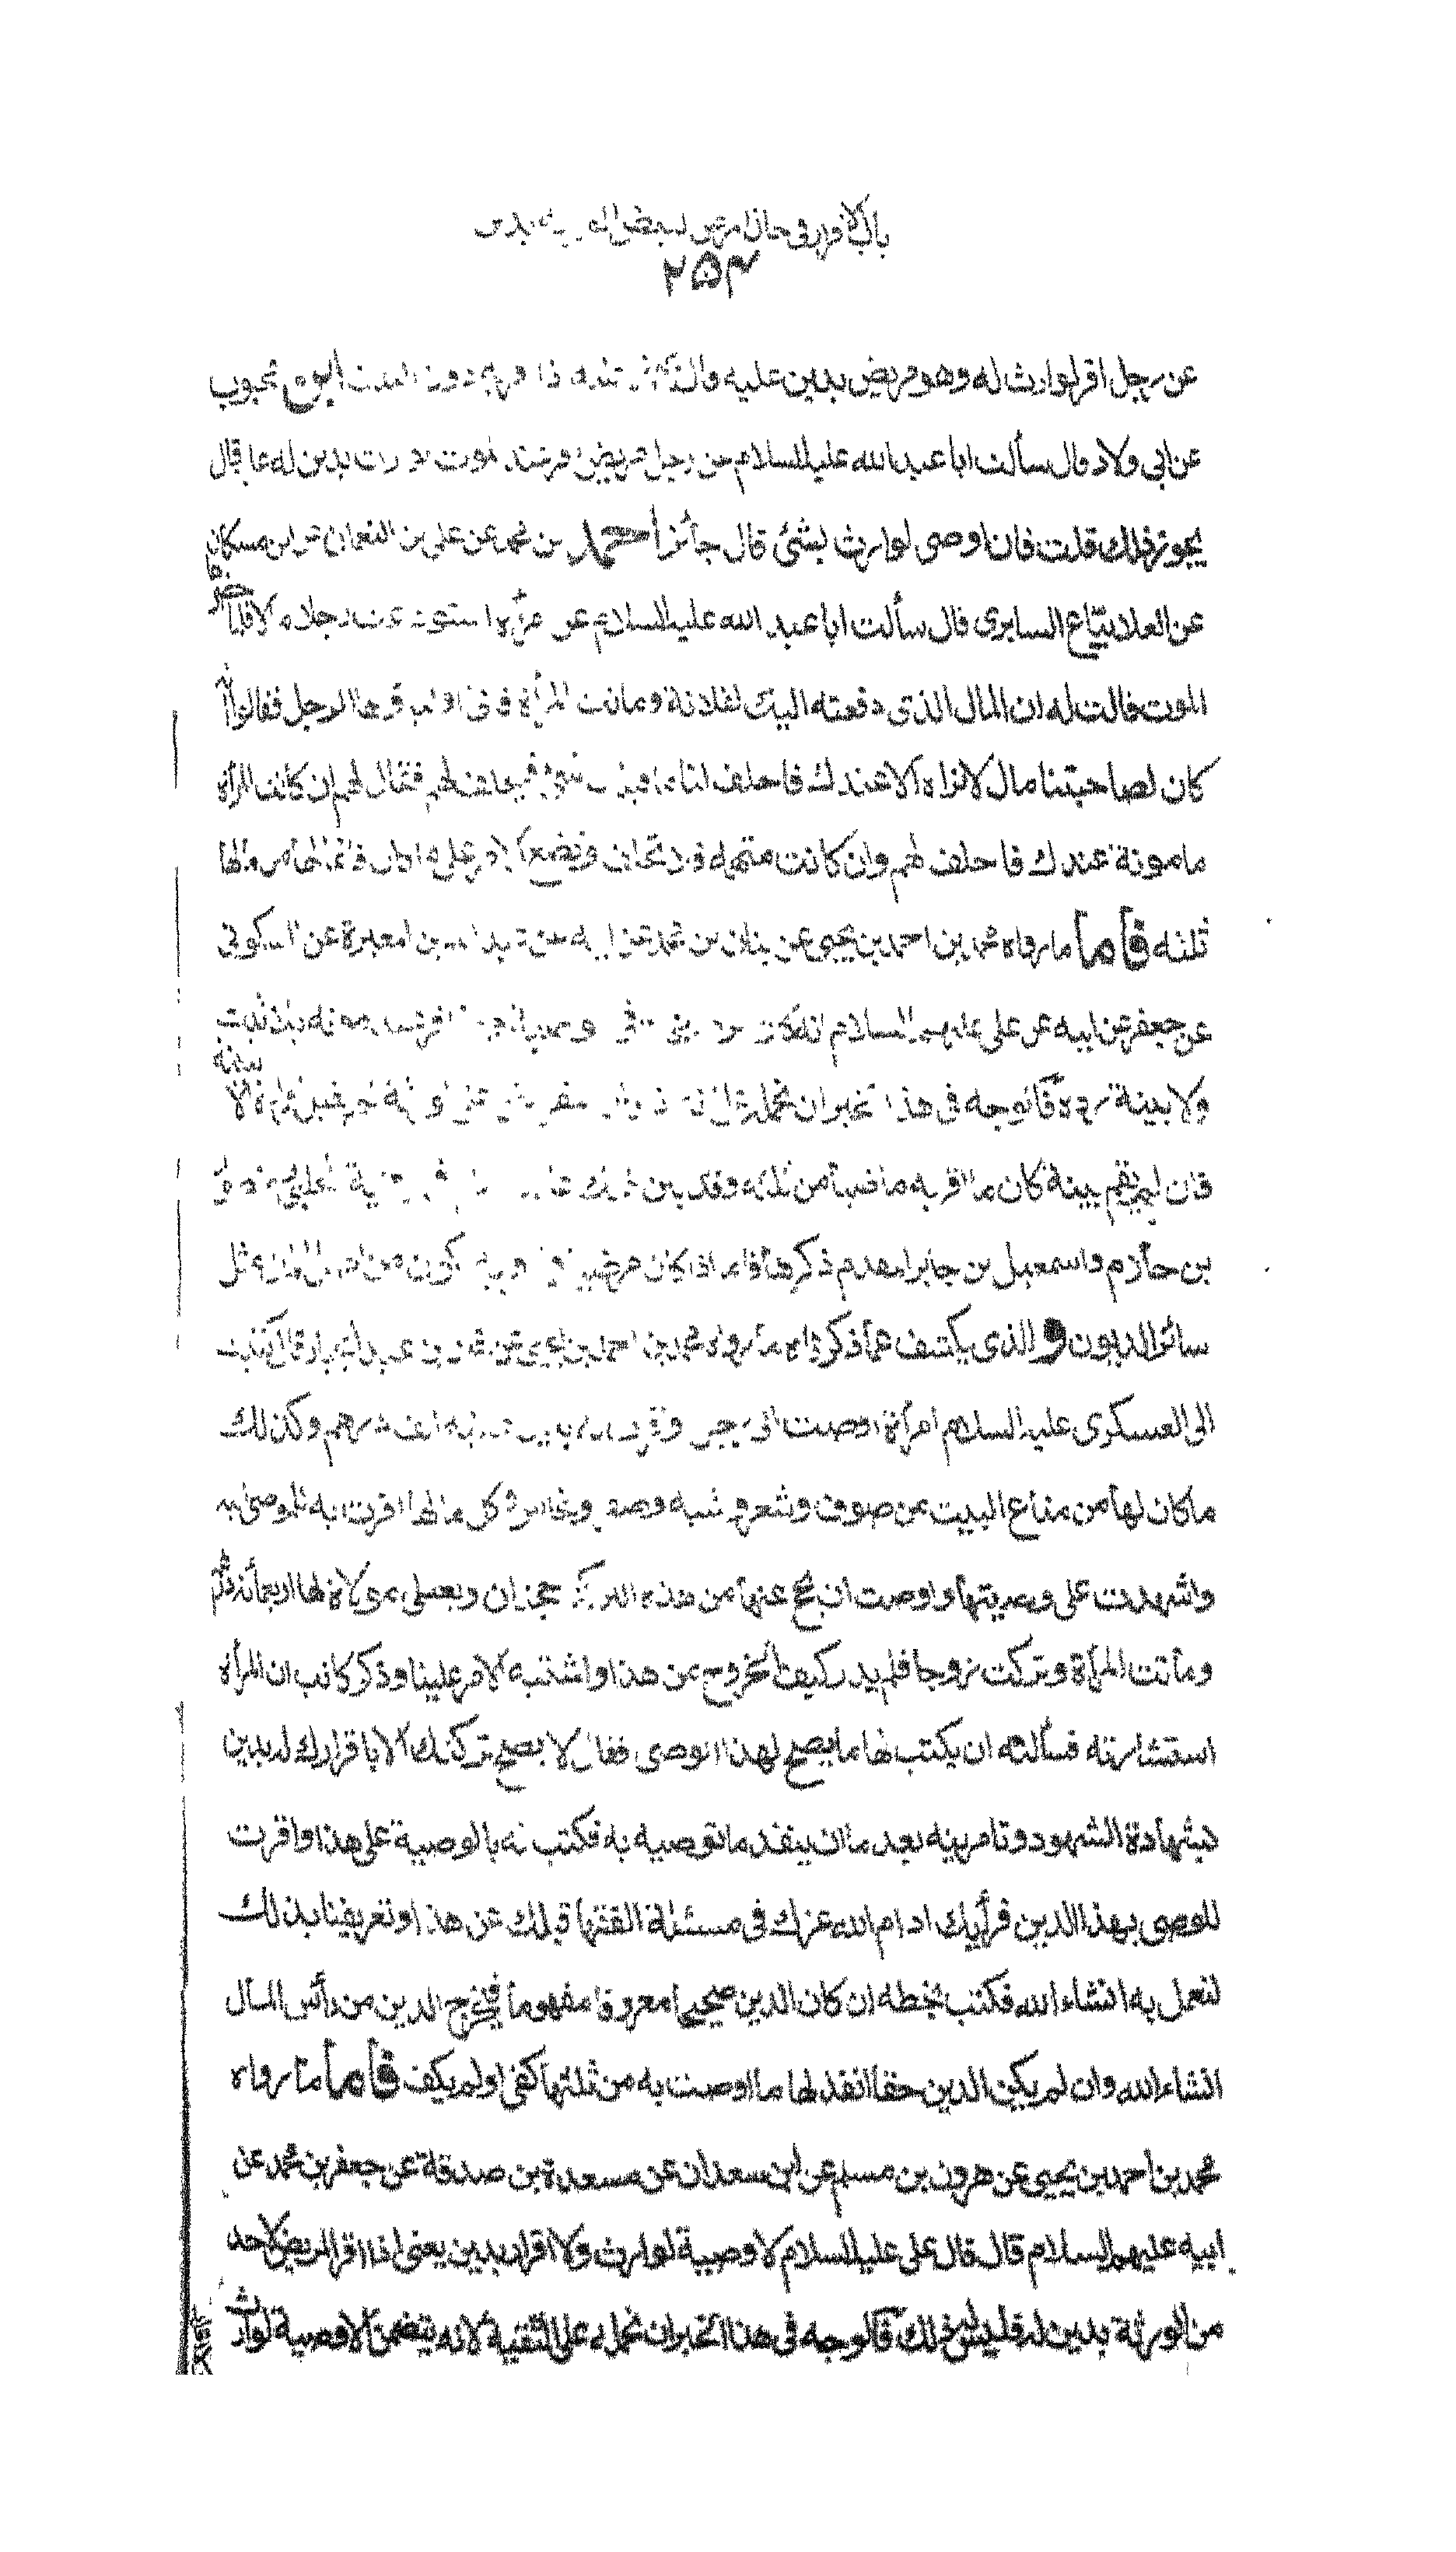 باب الاقرار في حال المرض لبعض بدين
۲۵۴
عن رجل اقر لوارث له وهو مريض بدين عليه قال اذا دون الثلث ابن محبوب
عن ابي ولاد قال سألت ابا عبد الله عليه السلام عن رجل مريض اقر عند الموت لوارث بدين له عليه قال
يجوز ذلك قلت فان اوصى لوارث بشئ قال جائز احمد بن محمد عن علي بن النعمان عن ابن مسكان
عن العلا بياع السابري قال سألت ابا عبد الله عليه السلام عن امرأة استودعت رجلا مالا فلما حضرها
الموت قالت له ان المال الذى دفعته اليك لفلانة وماتت المرأة فاتى اولياؤها الرجل فقالوا له
كان لصاحبتنا مال لانراه الا عندك فاحلف لنا ما قبلك شئ فيحلف لهم فقال لهم ان كانت المرأة
مامونة عندك فاحلف لهم وان كانت متهمة فلا تحلف وتضع الامر على ما كان فانما لها من مالها
ثلثه فأما ما رواه محمد بن احمد بن يحيى عن بنان بن محمد عن ابيه عن عبد الله بن المغيرة عن السكوني
عن جعفر عن ابيه عن علي عليهم السلام انه كان يرد بلا ثبت
ولا بينة رده فالوجه في هذا الخبر ان نحمله على الا ببينة
فان لم يقم بينة كان ما اقر به ماضيا من ثلثه وقد بين ذلك
بن حازم واسمعيل بن جابر المقدم ذكرهما فاما اذا كان مرضيا يكون من اصل المال مثل
سائر الديون والذى يكشف عما ذكرناه ما رواه محمد بن احمد بن يحيى عن محمد بن عبد الجبار قال كتبت
الى العسكرى عليه السلام امرأة اوصت الى رجل واقرت له بدين ثمانية الف درهم وكذلك
ما كان لها من متاع البيت من صوف وشعر وشبه وصفر ونحاس وكل ما لها اقرت به للموصى اليه
واشهدت على وصيتها واوصت ان يحج عنها من هذه التركة حجتان ويعطى مولاة لها اربعمائة درهم
وماتت المرأة وتركت زوجا فلم يدر كيف الخروج من هذا واشتبه الامر علينا وذكر كاتب ان المرأة
استشارته فسألته ان يكتب لها ما يصح لهذا الوصى فقال لا يصح تركتك الا باقرارك له بدين
بشهادة الشهود وتامرينه بعد ما ان ينفذ ما توصيه به فكتب له بالوصية على هذا واقرت
للوصى بهذا الدين فرأيك ادام الله عزك في مسئلة الفقهاء قبلك عن هذا وتعريفنا بذلك
لنعمل به انشاء الله فكتب بخطه ان كان الدين صحيحا معروفا مفهوما فيخرج الدين من رأس المال
انشاء الله وان لم يكن الدين حقا انفذ لها ما اوصت به من ثلثها كفى او لم يكف فأما ما رواه
محمد بن احمد بن يحيى عن هرون بن مسلم عن ابن سعدان عن مسعدة بن صدقة عن جعفر بن محمد عن
ابيه عليهم السلام قال قال علي عليه السلام لا وصية لوارث ولا اقرار بدين يعنى اذا اقر المريض لاحد
من الورثة بدين له فليس له ذلك فالوجه في هذا الخبر ان نحمله على التقية لانه يتضمن لا وصية لوارث